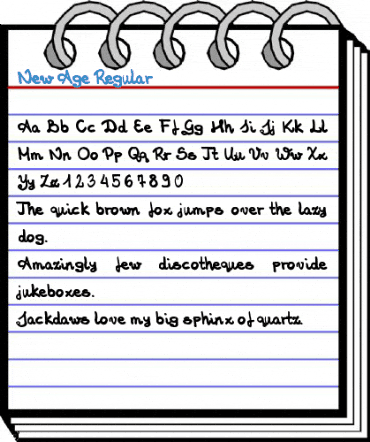 New Age Regular
Aa Bb Cc Dd Ee Ff Gg Hh Ii Jj Kk Ll
Mm Nn Oo Pp Qq Rr Ss Tt Uu Vv Ww Xx
Yy Zz 1 2 3 4 5 6 7 8 9 0
The quick brown fox jumps over the lazy
dog.
Amazingly few discotheques provide
jukeboxes.
Jackdaws love my big sphinx of quartz.